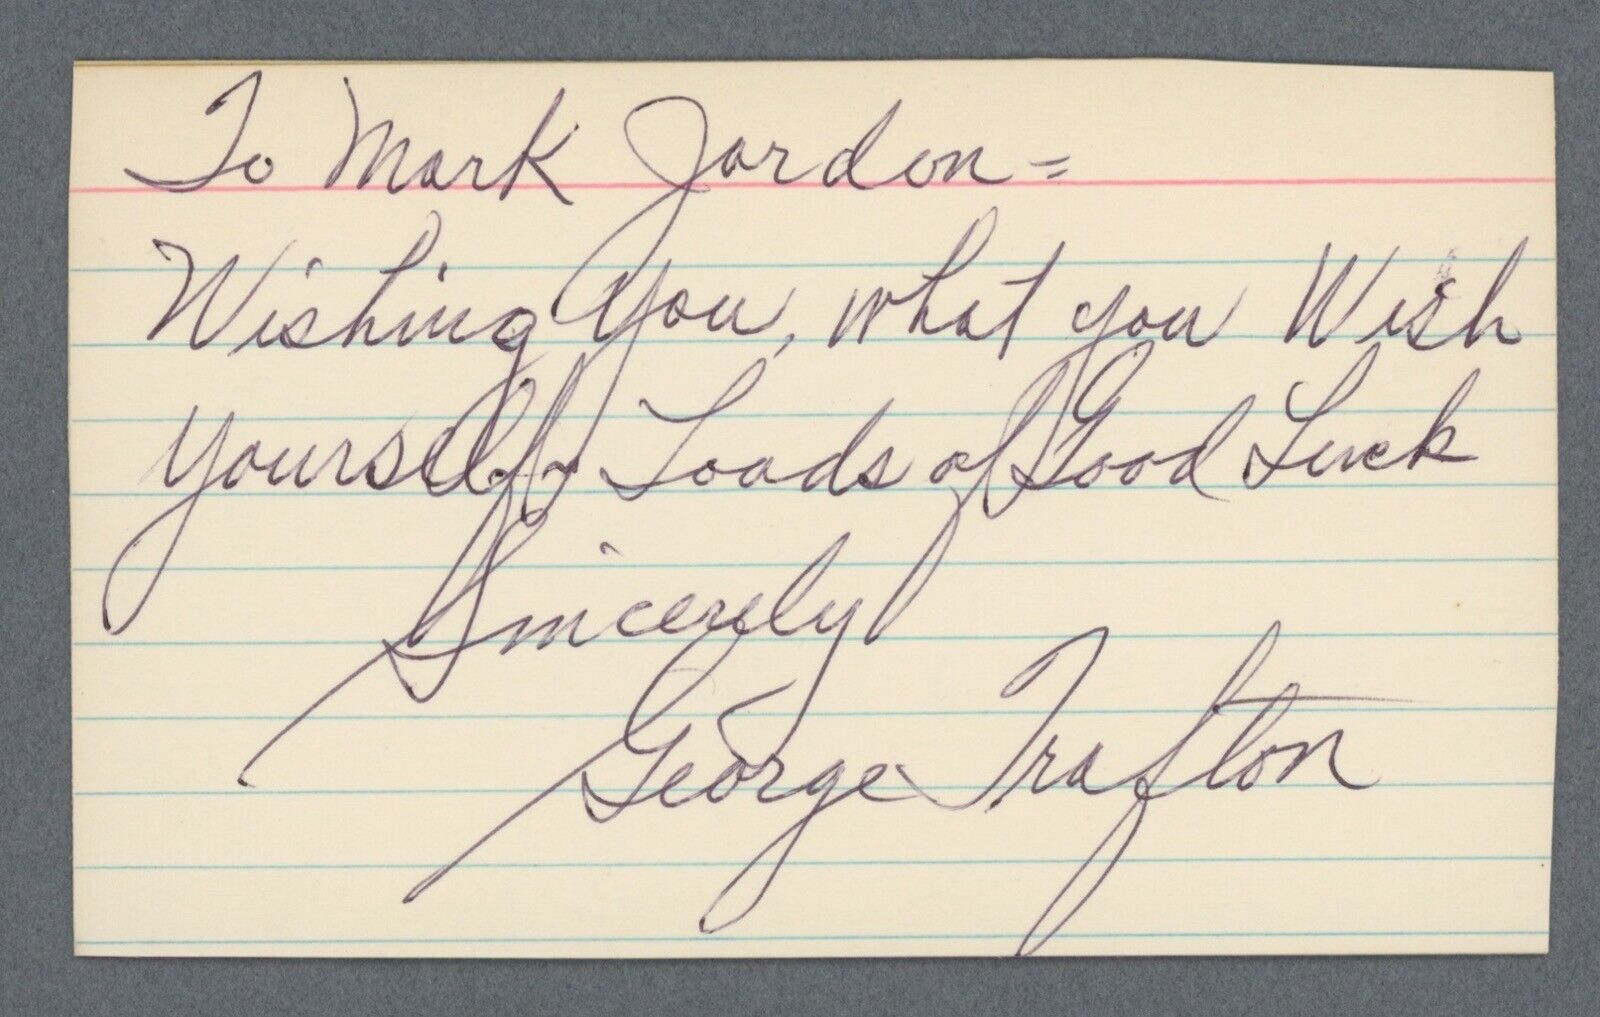 To Mark Jordon =
Wishing You, what you Wish
yourself - Loads of Good Luck
Sincerely
George Trafton